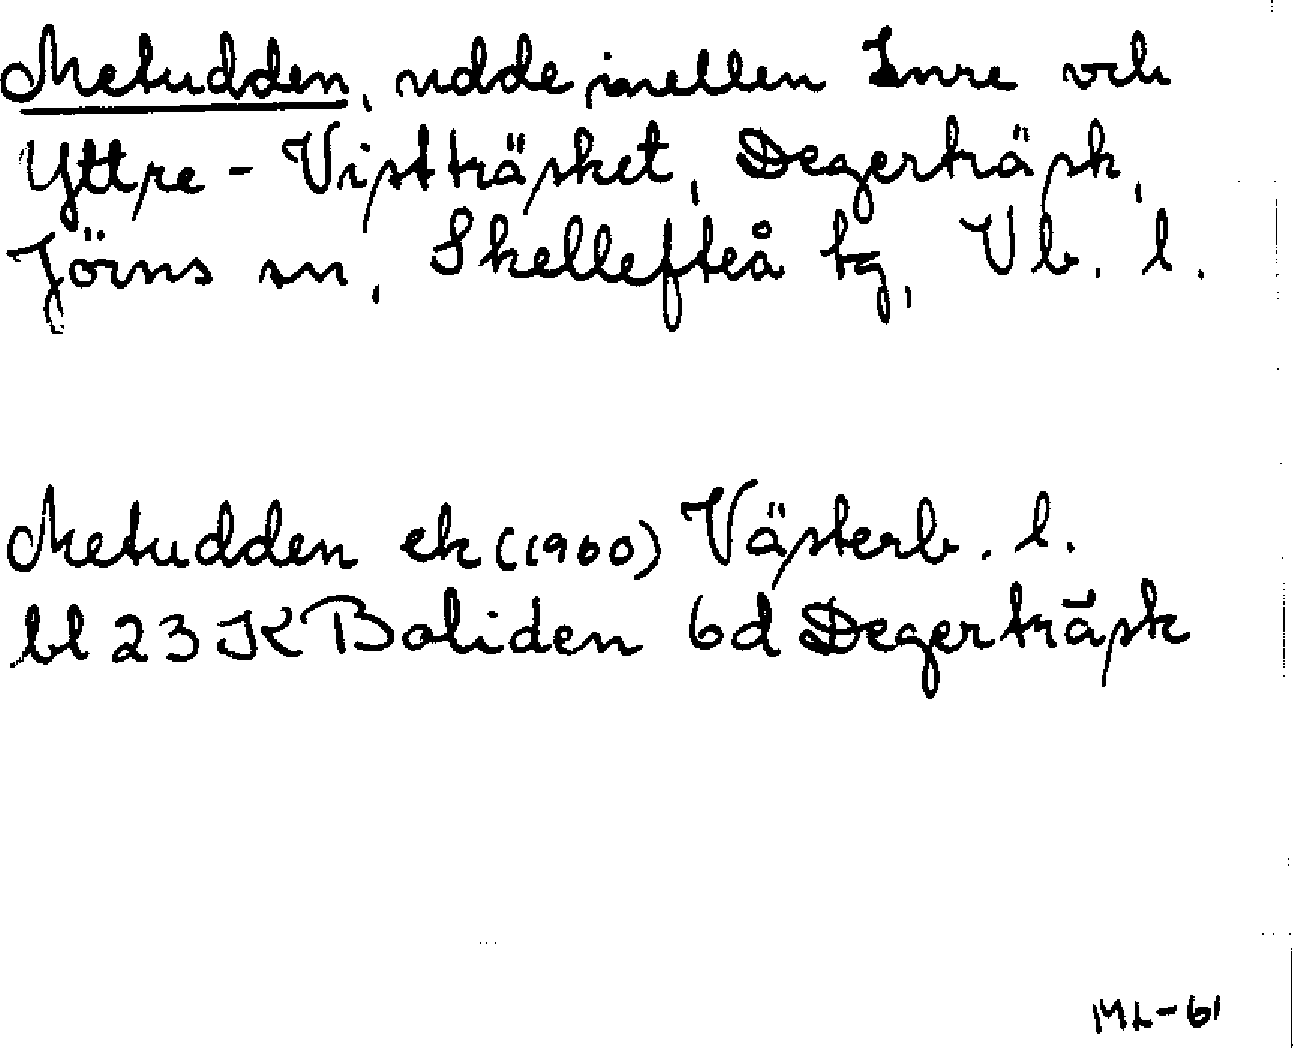 Metudden, udde mellen Inre och
Yttre - Vistträsket, Degerträsk,
Jörns sn, Skellefteå tg, Vb. l.
Metudden ek (1960) Västerb. l.
bl 23 K Boliden 6d Degerträsk
ML-61